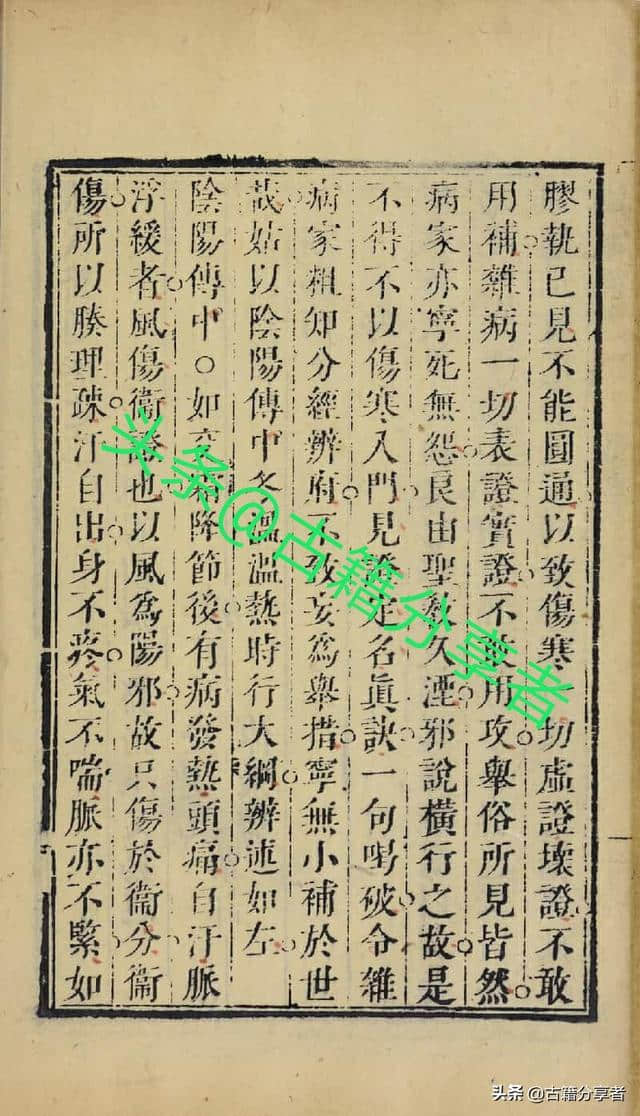 膠執已見不能圓通以致傷寒一切虛證壞證不敢
用補雜病一切表證實證不敢用攻舉俗所見皆然
病家亦寧死無怨良由聖教久湮邪說橫行之故是
不得不以傷寒入門見證定名眞訣一句喝破令雜
病家粗知分經辨府不致妄爲舉措寧無小補於世
哉姑以陰陽傳中冬溫溫熱時行大綱辨述如左
陰陽傳中○如至霜降節後有病發熱頭痛自汗脈
浮緩者風傷衞證也以風爲陽邪故只傷於衞分衞
傷所以腠理疎汗自出身不疼氣不喘脈亦不緊如
头条@古籍分享者
头条 @古籍分享者